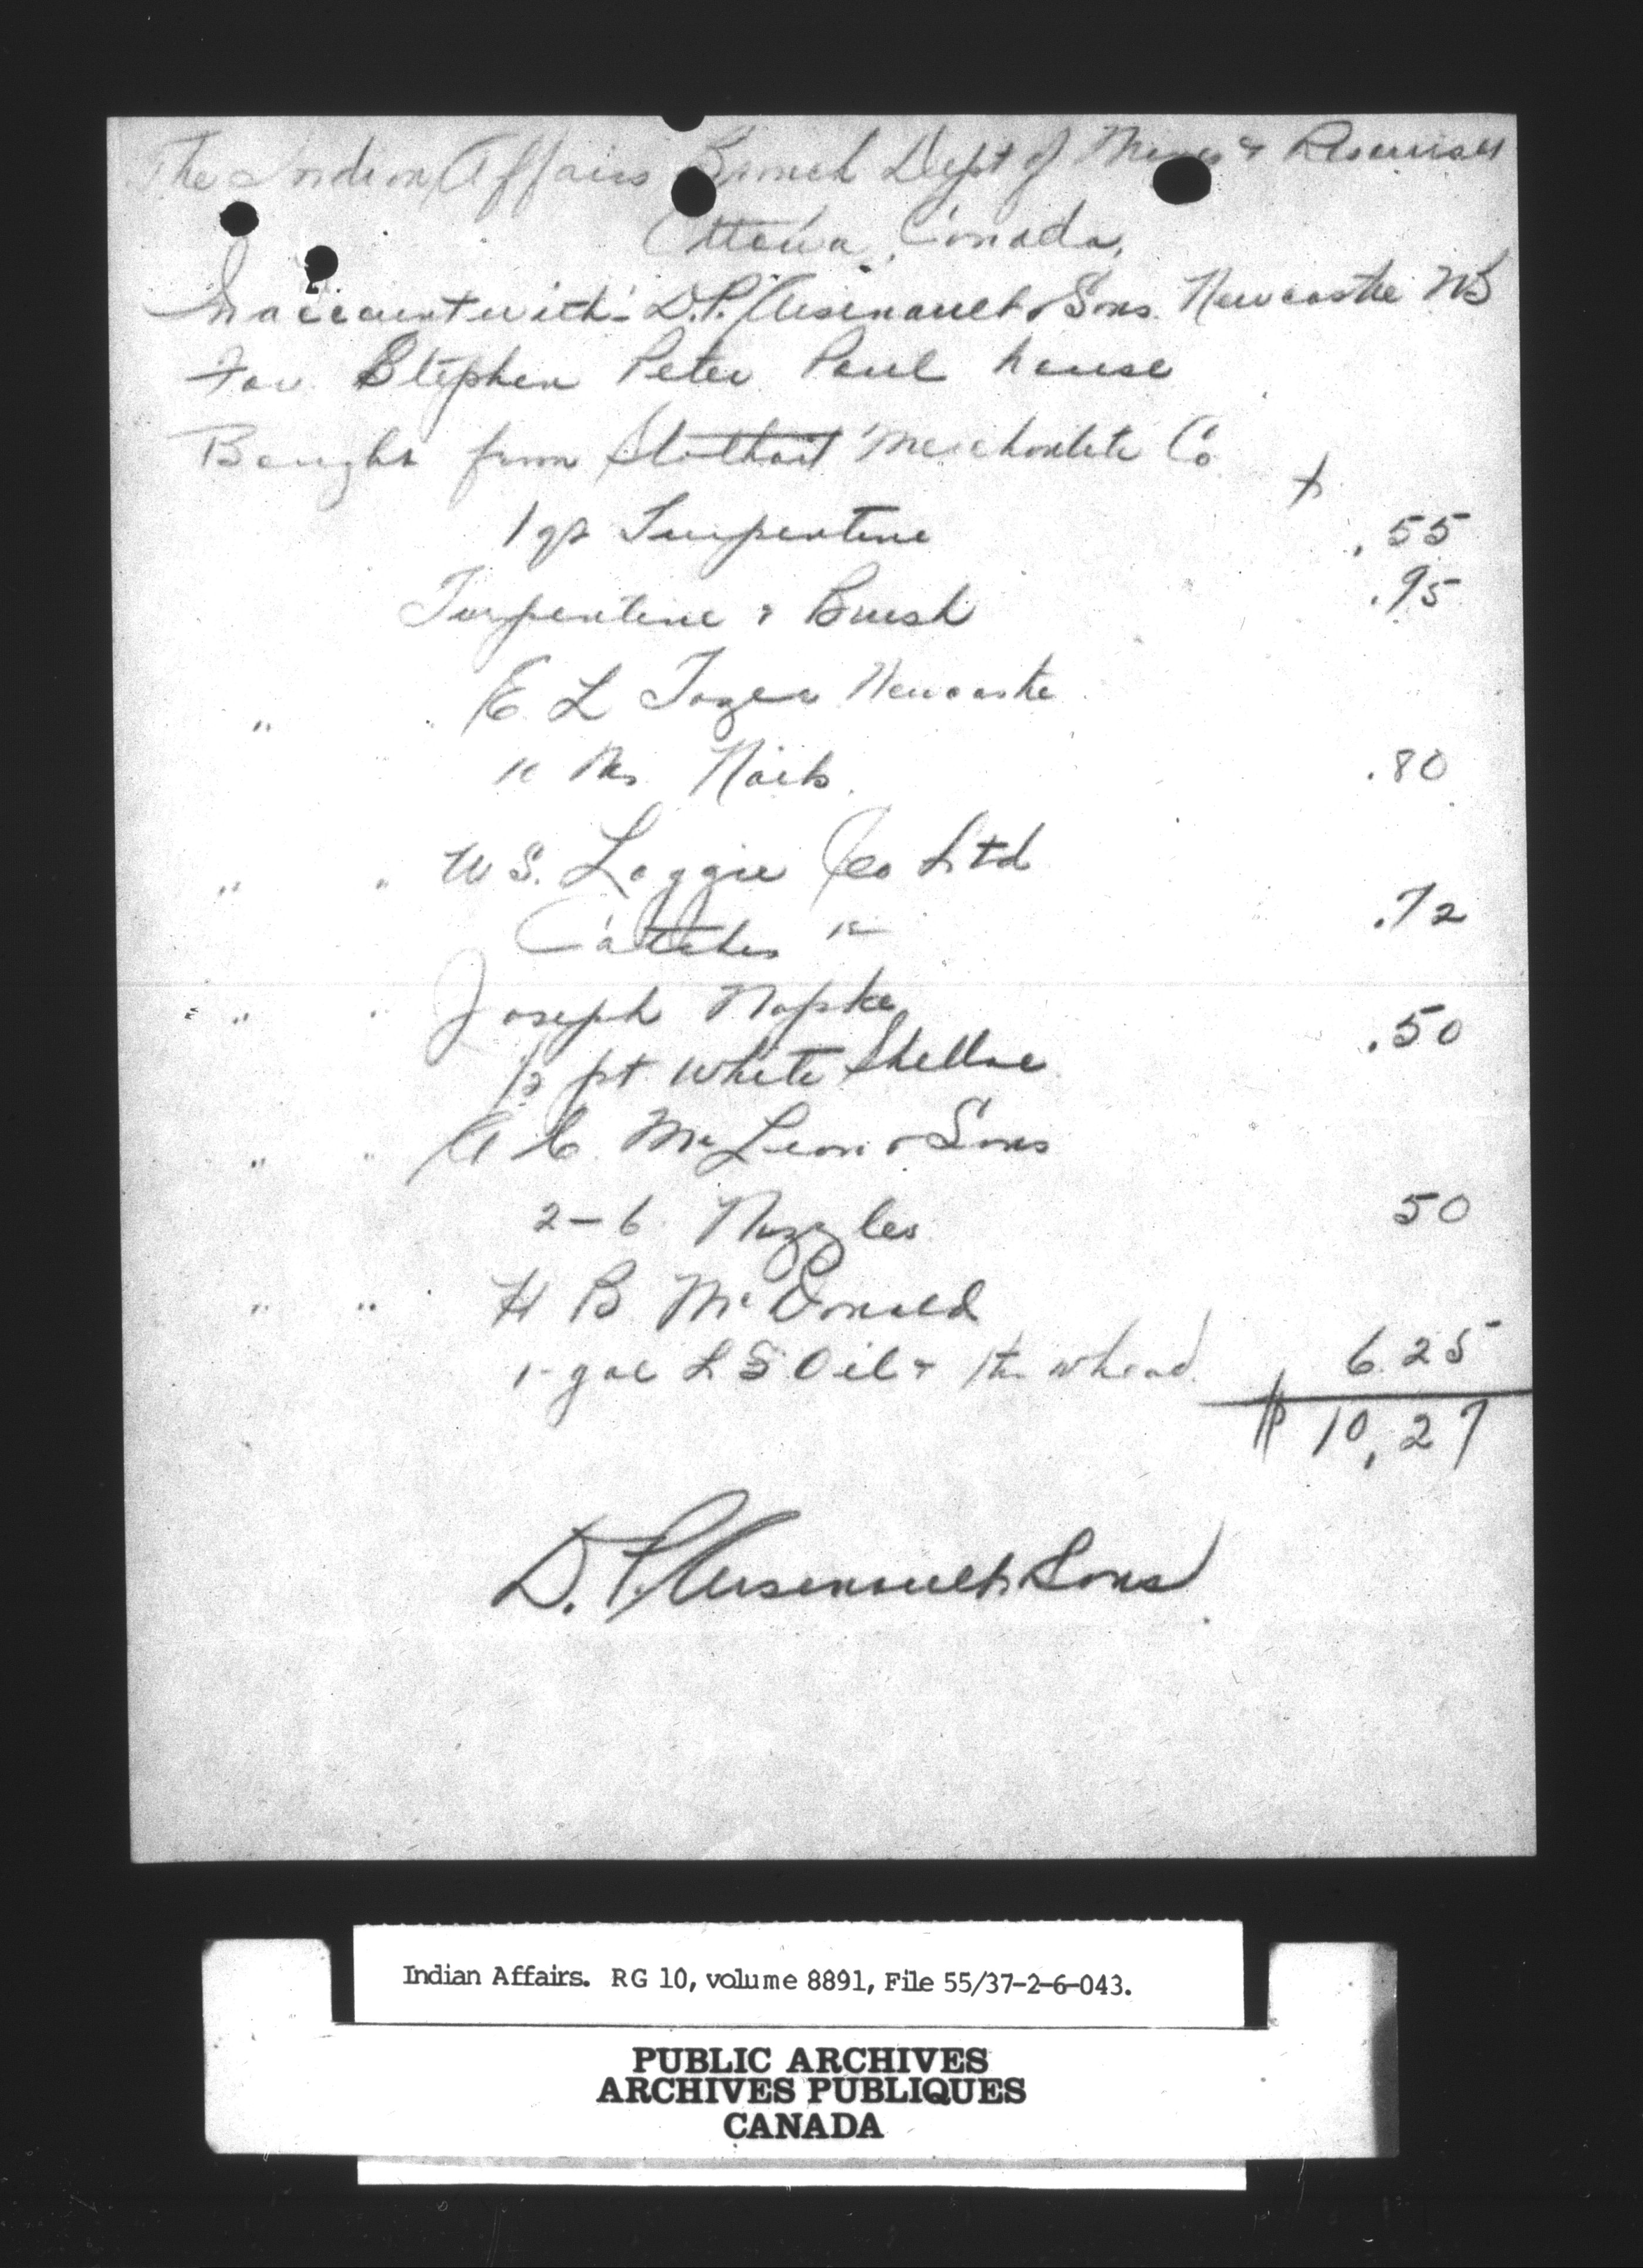 The Indian Affairs Branch Dept of Mines & Resources
Ottawa, Canada,
In account with - D.P. Arsenault & Sons. Newcastle NB
For Stephen Peter Paul house
Bought from Stothart Merchantile Co
1 qt Turpentine .55
Turpentine & Brush .95
" " E L Tozer Newcastle
10 lbs Nails .80
" " W S. Loggie Co Ltd
Catches .72
" " Joseph
1/2 pt white Shellac .50
" " A C McLean & Sons
2 - 6 Nozzles 50
" " H B McDonald
1 - gal L S Oil & w head 6.25
$ 10,27
D. P. Arsenault & Sons
Indian Affairs. RG 10, volume 8891, File 55/37-2-6-043.
PUBLIC ARCHIVES
ARCHIVES PUBLIQUES
CANADA